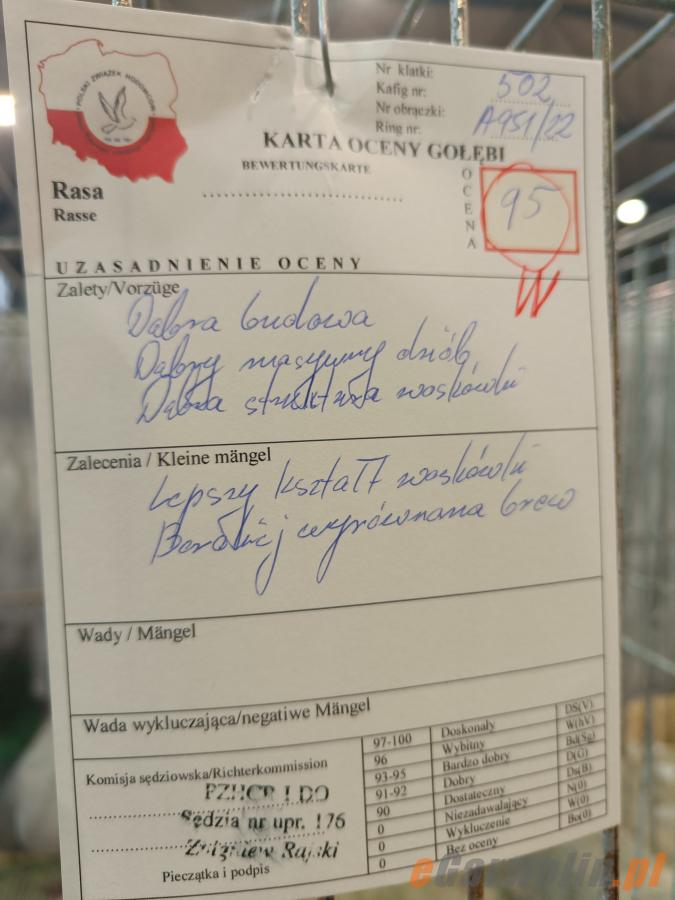 POLSKI ZWIĄZEK HODOWCÓW
Nr klatki:
Kafig nr: 502
Nr obrączki:
Ring nr: A951/22
KARTA OCENY GOŁĘBI
BEWERTUNGSKARTE
Rasa
Rasse
OCENA
95
W
UZASADNIENIE OCENY
Zalety/Vorzüge
Dobra budowa
Dobry masywny dziób
Dobra struktura woskówki
Zalecenia / Kleine mängel
Lepszy kształt woskówki
Bardziej wyrównana brew
Wady / Mängel
Wada wykluczająca/negatiwe Mängel
Komisja sędziowska/Richterkommission
PZHGR I DO
Sędzia nr upr. 176
Zbigniew Rajski
Pieczątka i podpis
97-100 Doskonały DS(V)
96 Wybitny W(hV)
93-95 Bardzo dobry Bd(Sg)
91-92 Dobry D(G)
90 Dostateczny Ds(B)
0 Niezadawalający N(0)
0 Wykluczenie W(0)
0 Bez oceny Bo(0)
eGarwolin.pl